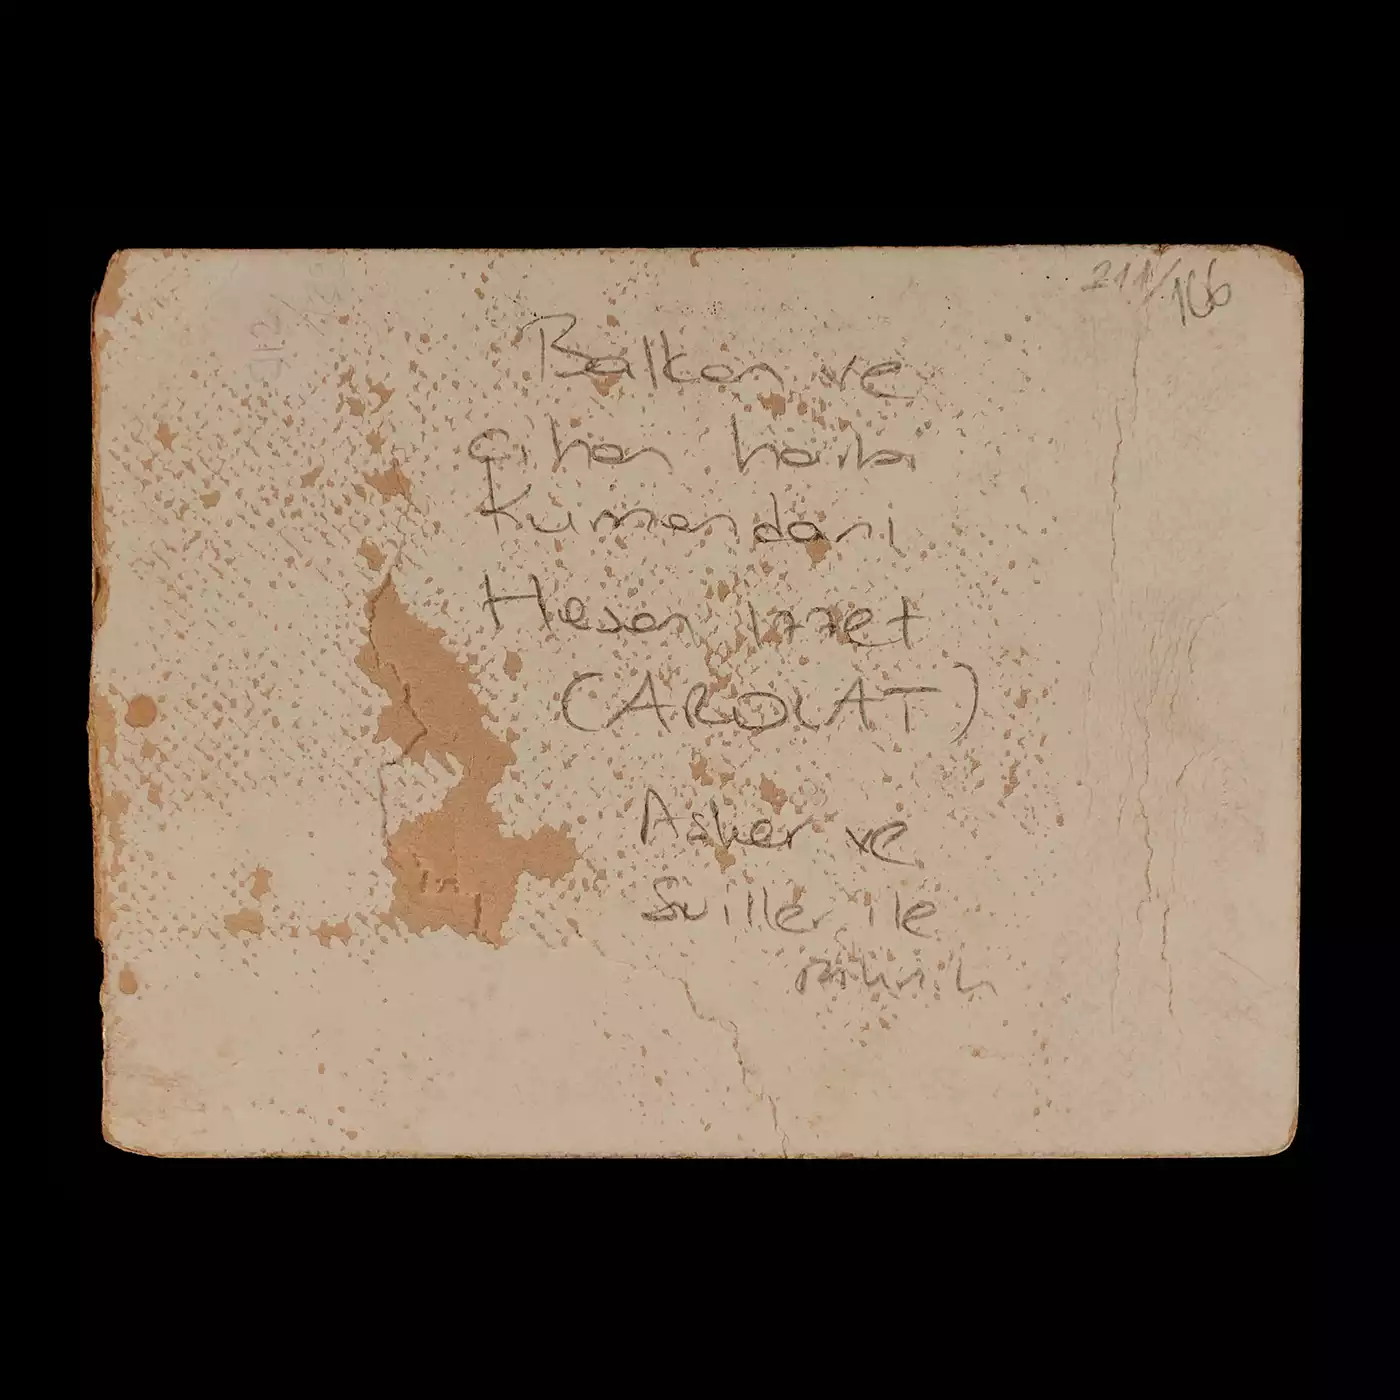 211/166
Balkan ve
Cihan harbi
Kumandanı
Hasan Izzet
(AROLAT)
Asker ve
Siviller ile